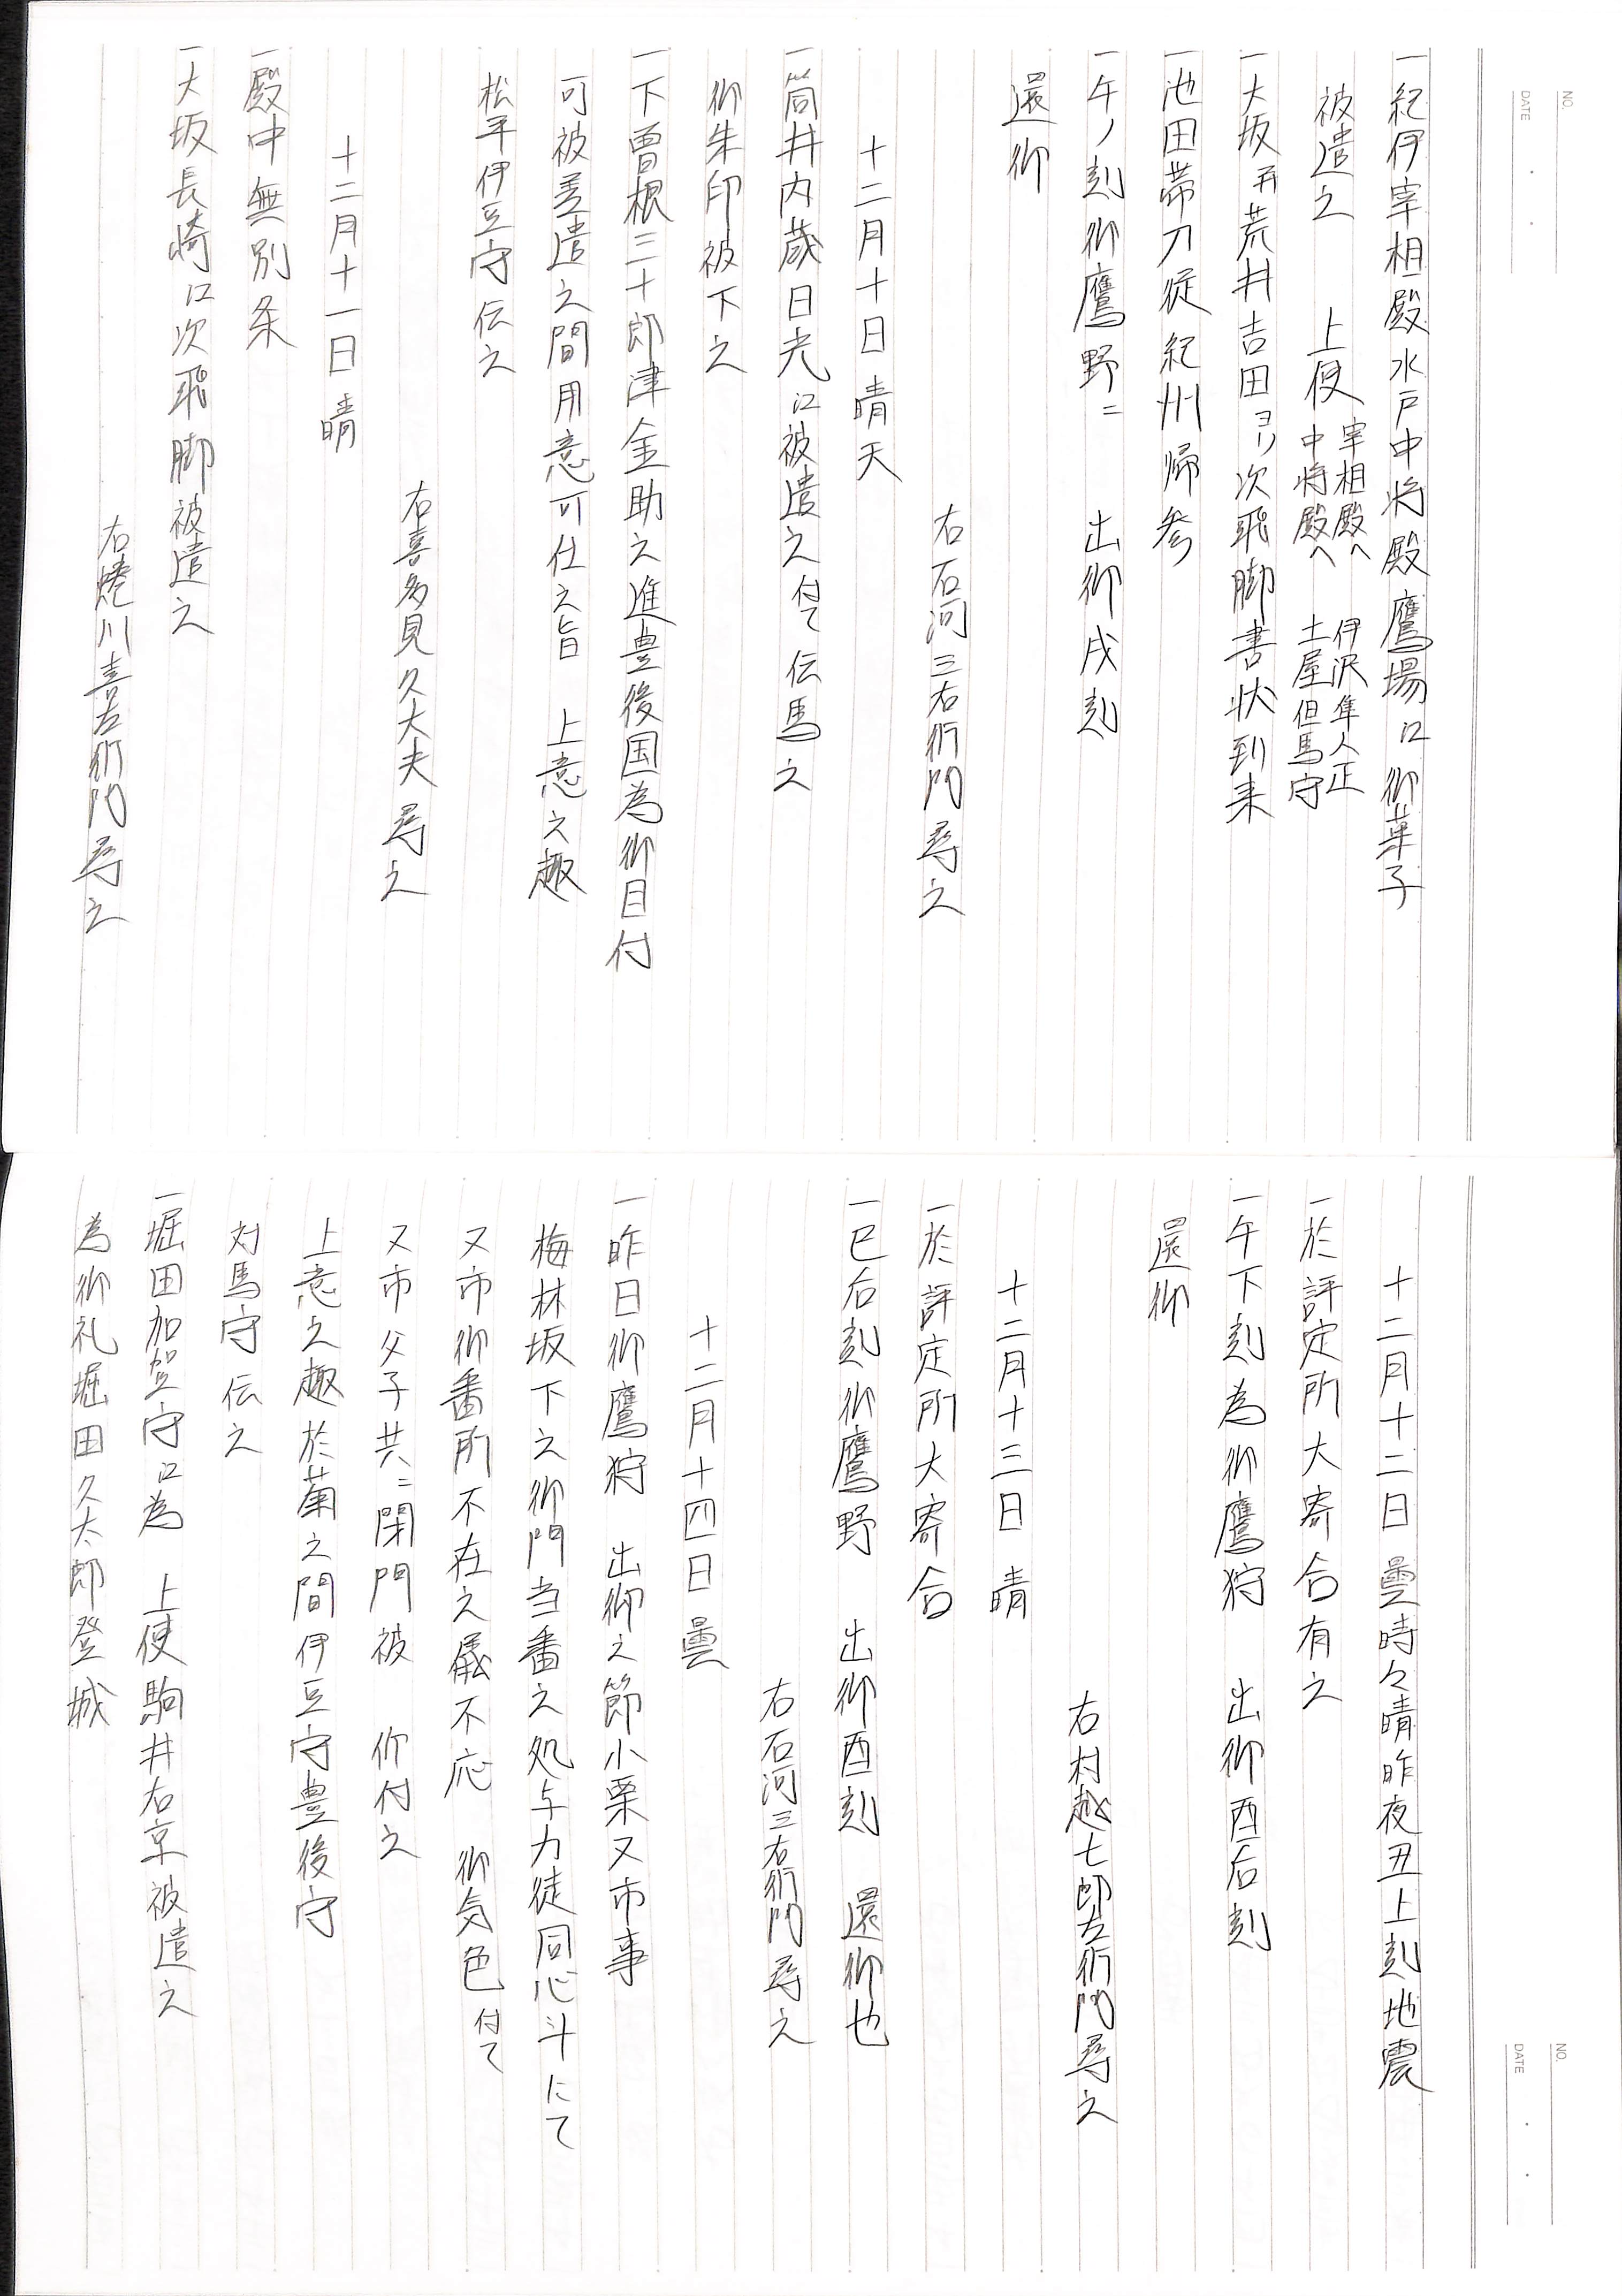 NO.
DATE
一紀伊宰相殿水戸中将殿鷹場江御菓子
被遣之　上使 宰相殿へ 伊沢隼人正
中将殿へ 土屋但馬守
一大坂并荒井吉田ヨリ次飛脚書状到来
一池田帯刀従紀州帰参
一午ノ刻御鷹野ニ　出御戌刻
還御
右石河三右衛門尋之
十二月十日晴天
一筒井内蔵日光江被遣之付て伝馬之
御朱印被下之
一下曽根三十郎津金助之進豊後国為御目付
可被差遣之間用意可仕之旨　上意之趣
松平伊豆守伝之
右喜多見久大夫尋之
十二月十一日晴
一殿中無別条
一大坂長崎江次飛脚被遣之
右蜷川喜左衛門尋之
NO.
DATE
十二月十二日曇時々晴昨夜丑上刻地震
一於評定所大寄合有之
一午下刻為御鷹狩　出御酉后刻
還御
右村越七郎左衛門尋之
十二月十三日晴
一於評定所大寄合
一巳后刻御鷹野　出御酉刻　還御也
右石河三右衛門尋之
十二月十四日曇
一昨日御鷹狩　出御之節小栗又市事
梅林坂下之御門当番之処与力徒同心斗にて
又市御番所不在之儀不応　御気色付て
又市父子共ニ閉門被　仰付之
上意之趣於菊之間伊豆守豊後守
対馬守伝之
一堀田加賀守江為　上使駒井右京被遣之
為御礼堀田久太郎登城